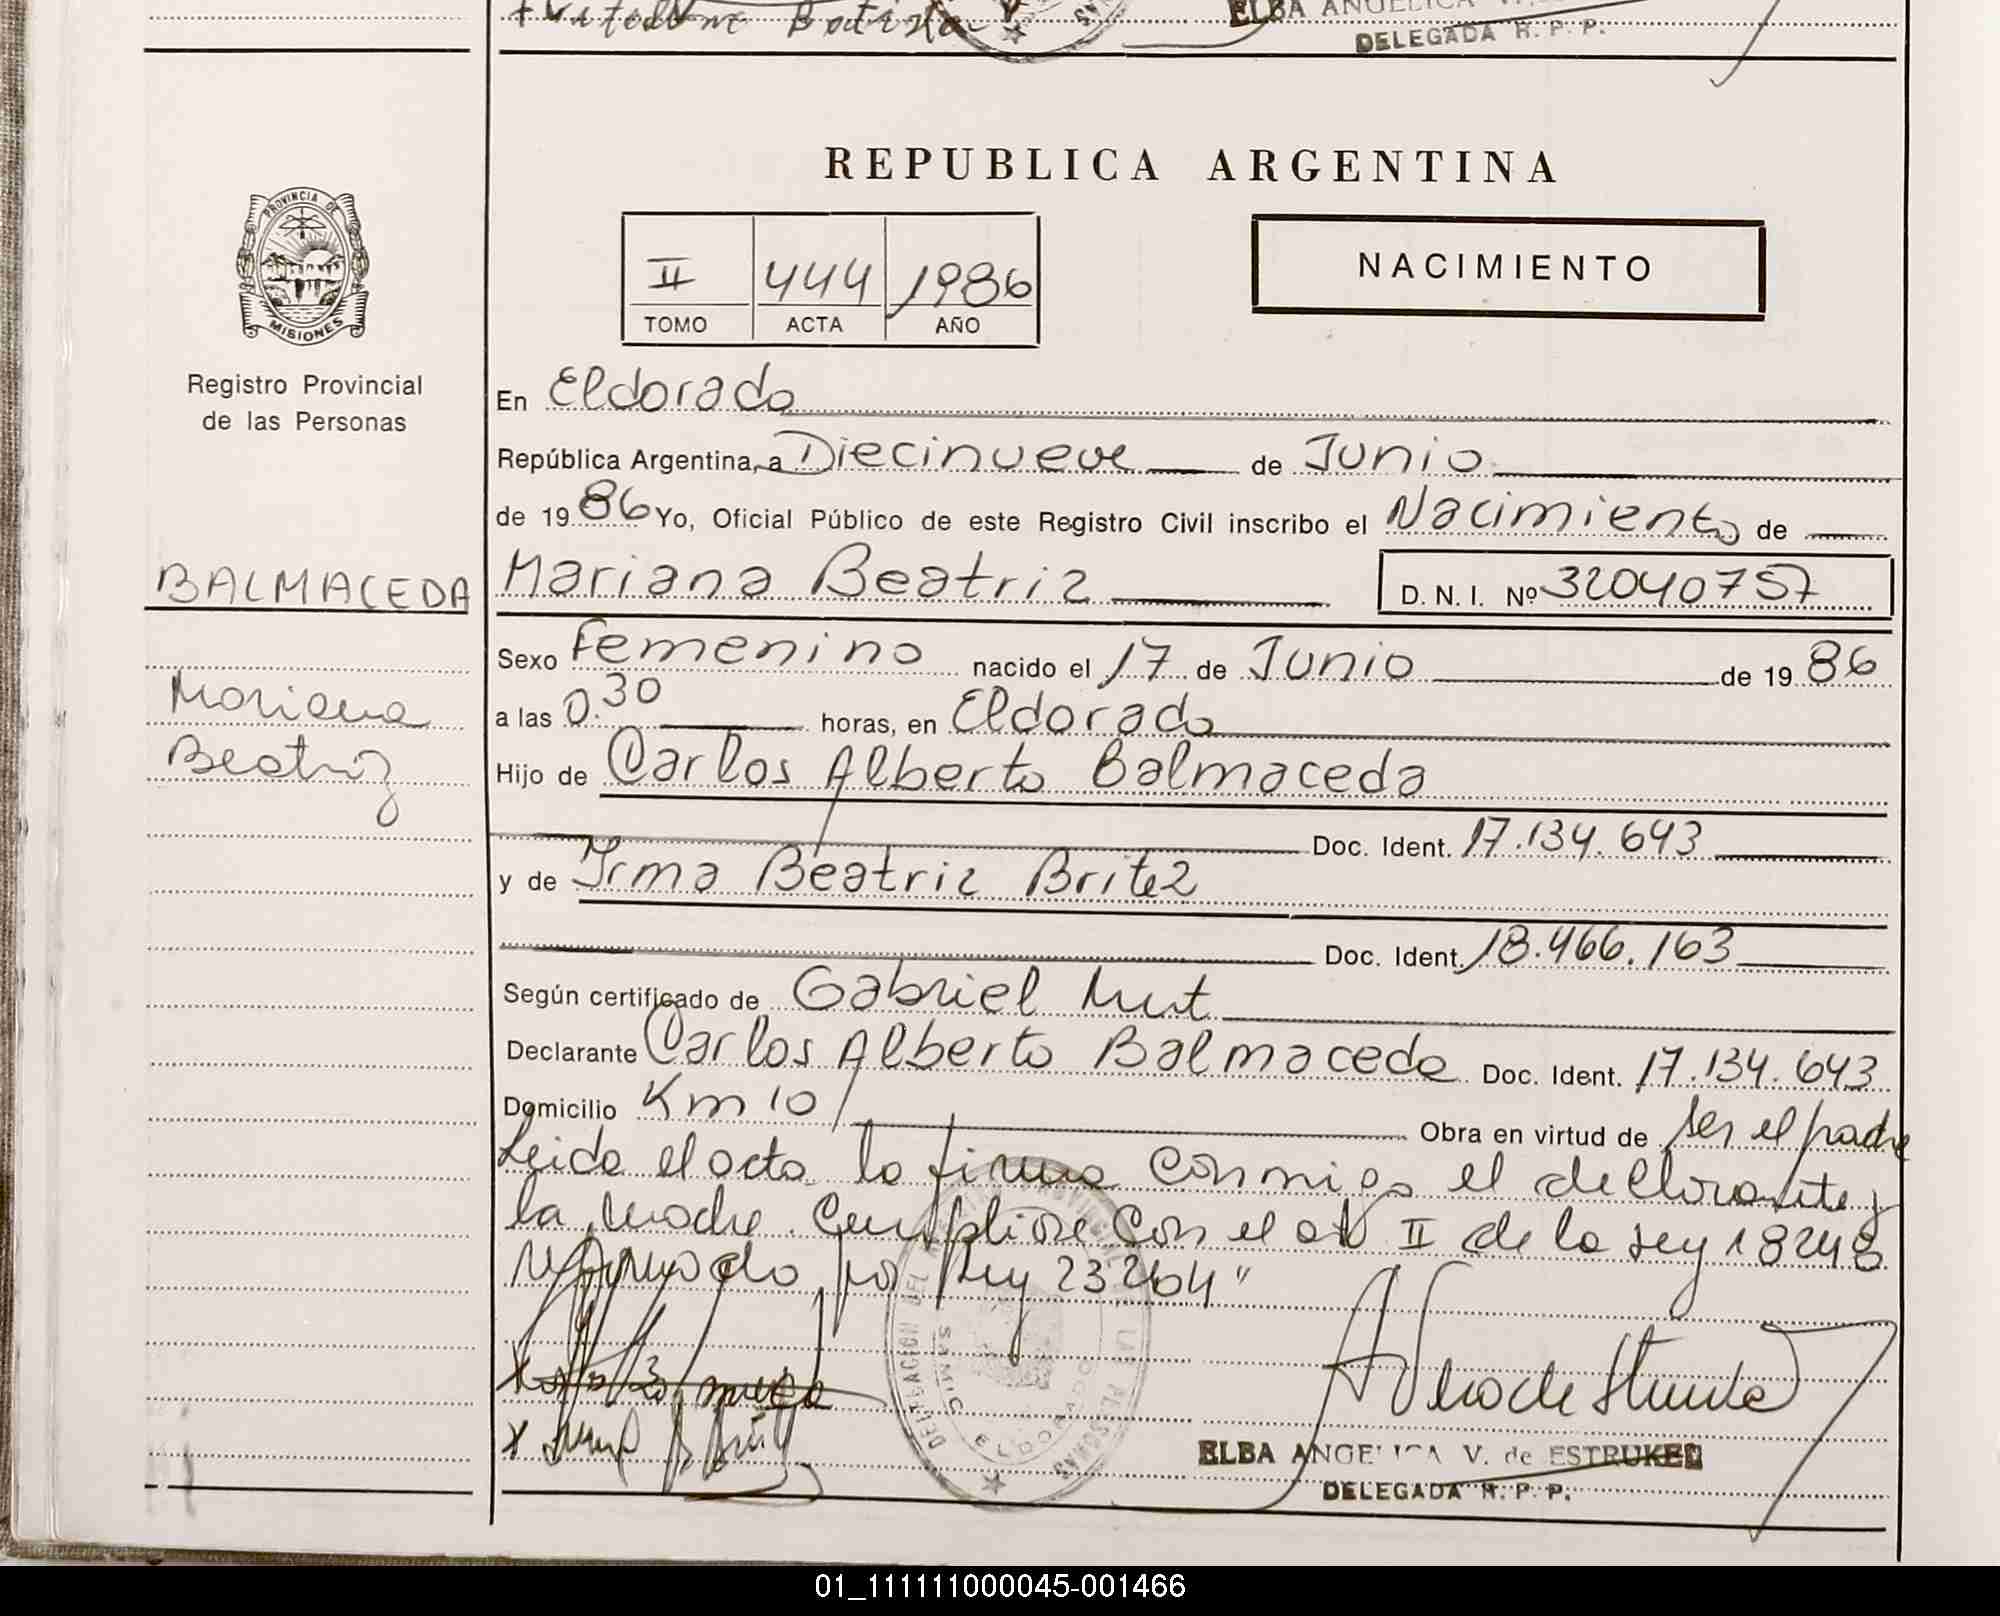 Batista
ELBA ANGELICA
DELEGADA R. P. P.
REPUBLICA ARGENTINA
PROVINCIA DE
MISIONES
Registro Provincial
de las Personas
II 444 1986
TOMO ACTA AÑO
NACIMIENTO
En Eldorado
República Argentina, a Diecinueve de Junio
de 1986 Yo, Oficial Público de este Registro Civil inscribo el Nacimiento de
BALMACEDA Mariana Beatriz D. N. I. Nº 32040757
Sexo Femenino nacido el 17 de Junio de 1986
Mariana
Beatriz
a las 0.30 horas, en Eldorado
Hijo de Carlos Alberto Balmaceda
Doc. Ident. 17.134.643
y de Irma Beatriz Britez
Doc. Ident. 18.466.163
Según certificado de Gabriel Mut
Declarante Carlos Alberto Balmaceda Doc. Ident. 17.134.643
Domicilio Km 10 Obra en virtud de ser el padre
Leida el acta la firma conmigo el declarante y
la madre. Cumpliose con el art II de la Ley 18248
reformado por Ley 23264"
DELEGACION DEL
LA
PERSONAS
SAMIC
ELDORADO
ELBA ANGELICA V. de ESTRUKEL
DELEGADA R. P. P.
01_111111000045-001466